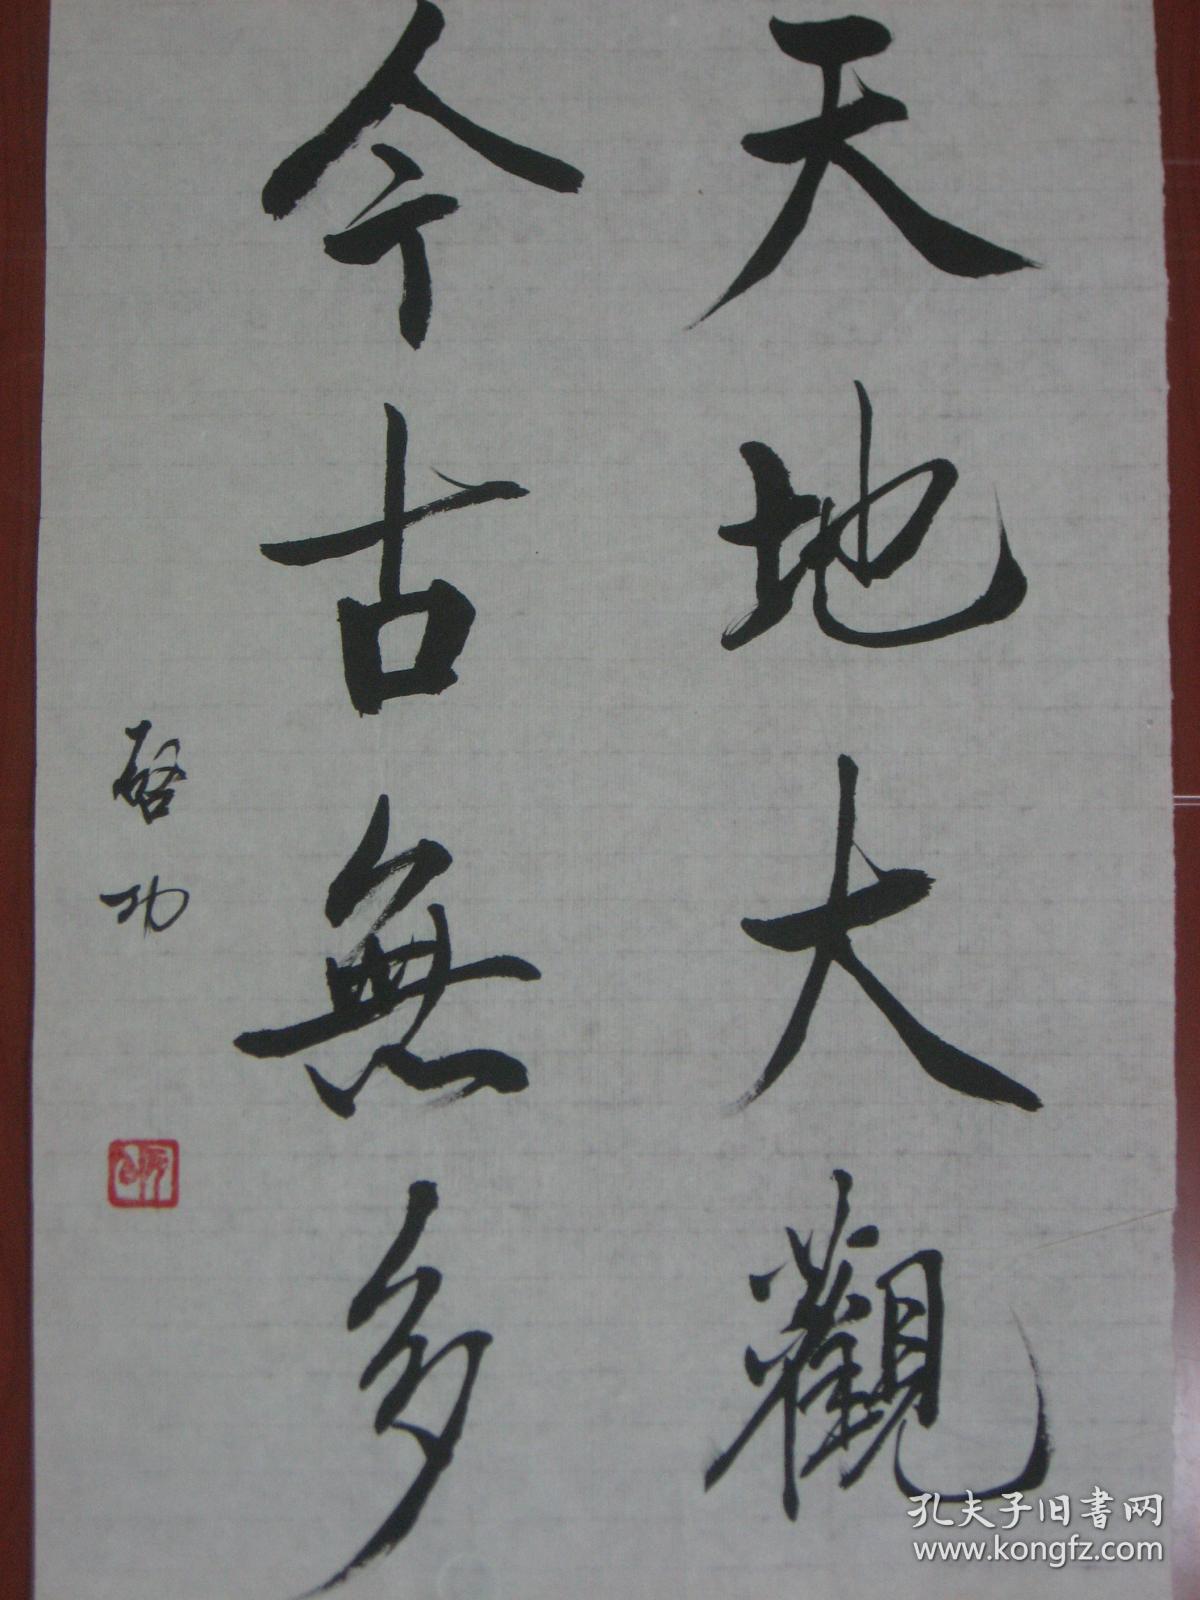 天地大觀
今古無多
啓功
孔夫子旧書网
www.kongfz.com